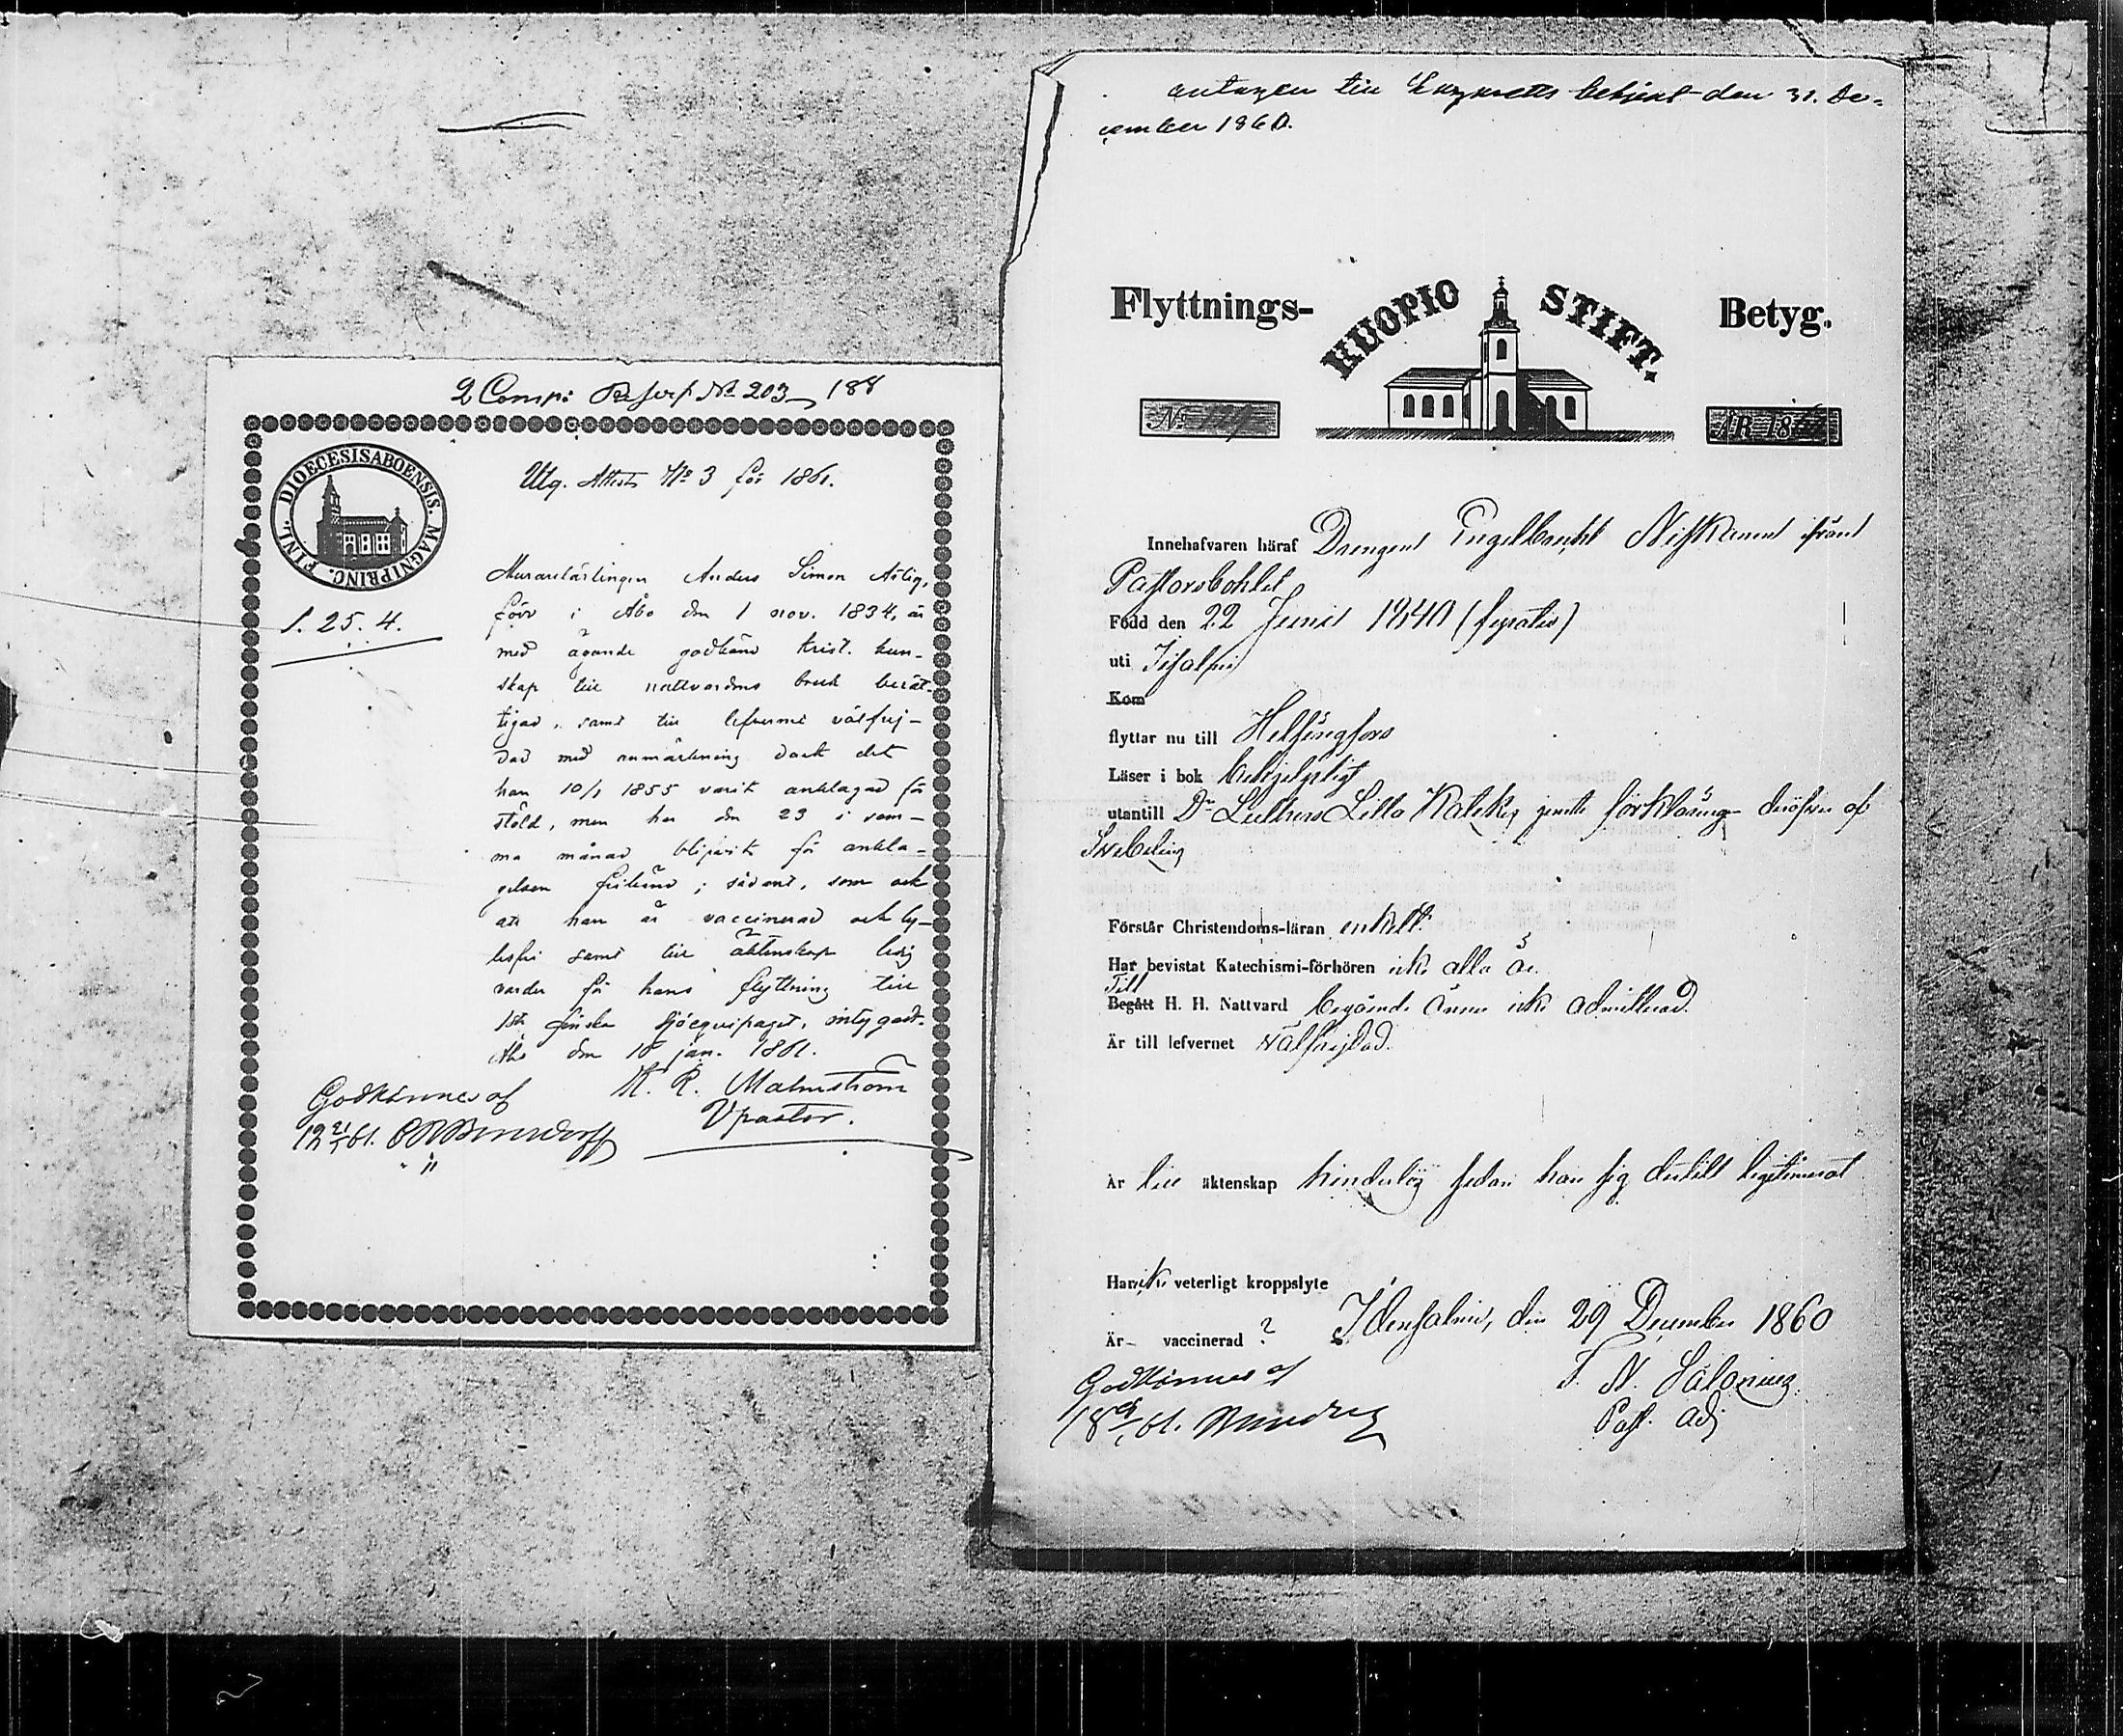 2 Comp: No 203 188
DIOECESIS ABOENSIS. MAGNI PRINC. FINL.
Utg. Attest No 3 för 1861.
S. 25. 4.
Murarelärlingen Anders Simon
född i Åbo den 1 nov. 1834, är
med ägande godkänd krist. kun-
skap till nattvardens bruk berät-
tigad, samt till lefvernet välfrej-
dad med anmärkning dock det
han 10/1 1855 varit anklagad för
stöld, men har den 23 i sam-
ma månad blifvit för ankla-
gelsen frikänd; sådant, som ock
att han är vaccinerad och ly-
tesfri samt till äktenskap ledig
varder för hans flyttning till
1sta finska Sjöequipaget, intygadt.
Åbo den 18 jan. 1861.
K. R. Malmström
V pastor.
Godkännes af
18 21/1 61.
antagen till Lazaretts betjent den 31. De-
cember 1860.
Flyttnings- KUOPIO STIFT. Betyg.
No ÅR 18
Innehafvaren häraf Drengen Engelbrecht Niskanen ifrån
Pastorsbohlet
Född den 22 Junii 1840
uti Iisalmi
Kom
flyttar nu till Helsingfors
Läser i bok
utantill Dr Luthers Lilla Kateket jemte förklaringen deröfver af
Swebelius
Förstår Christendoms-läran enkelt.
Har bevistat Katechismi-förhören icke alla år.
Till
Begått H. H. Nattvard begående ännu icke admitterad.
Är till lefvernet välfrejdad.
Är till äktenskap hinderlös sedan han sig dertill legitimerat
Har icke veterligt kroppslyte
Är vaccinerad ?
Idensalmi, den 29 December 1860
Salonius
Past. Adj
Godkännes af
18 9/1 61.